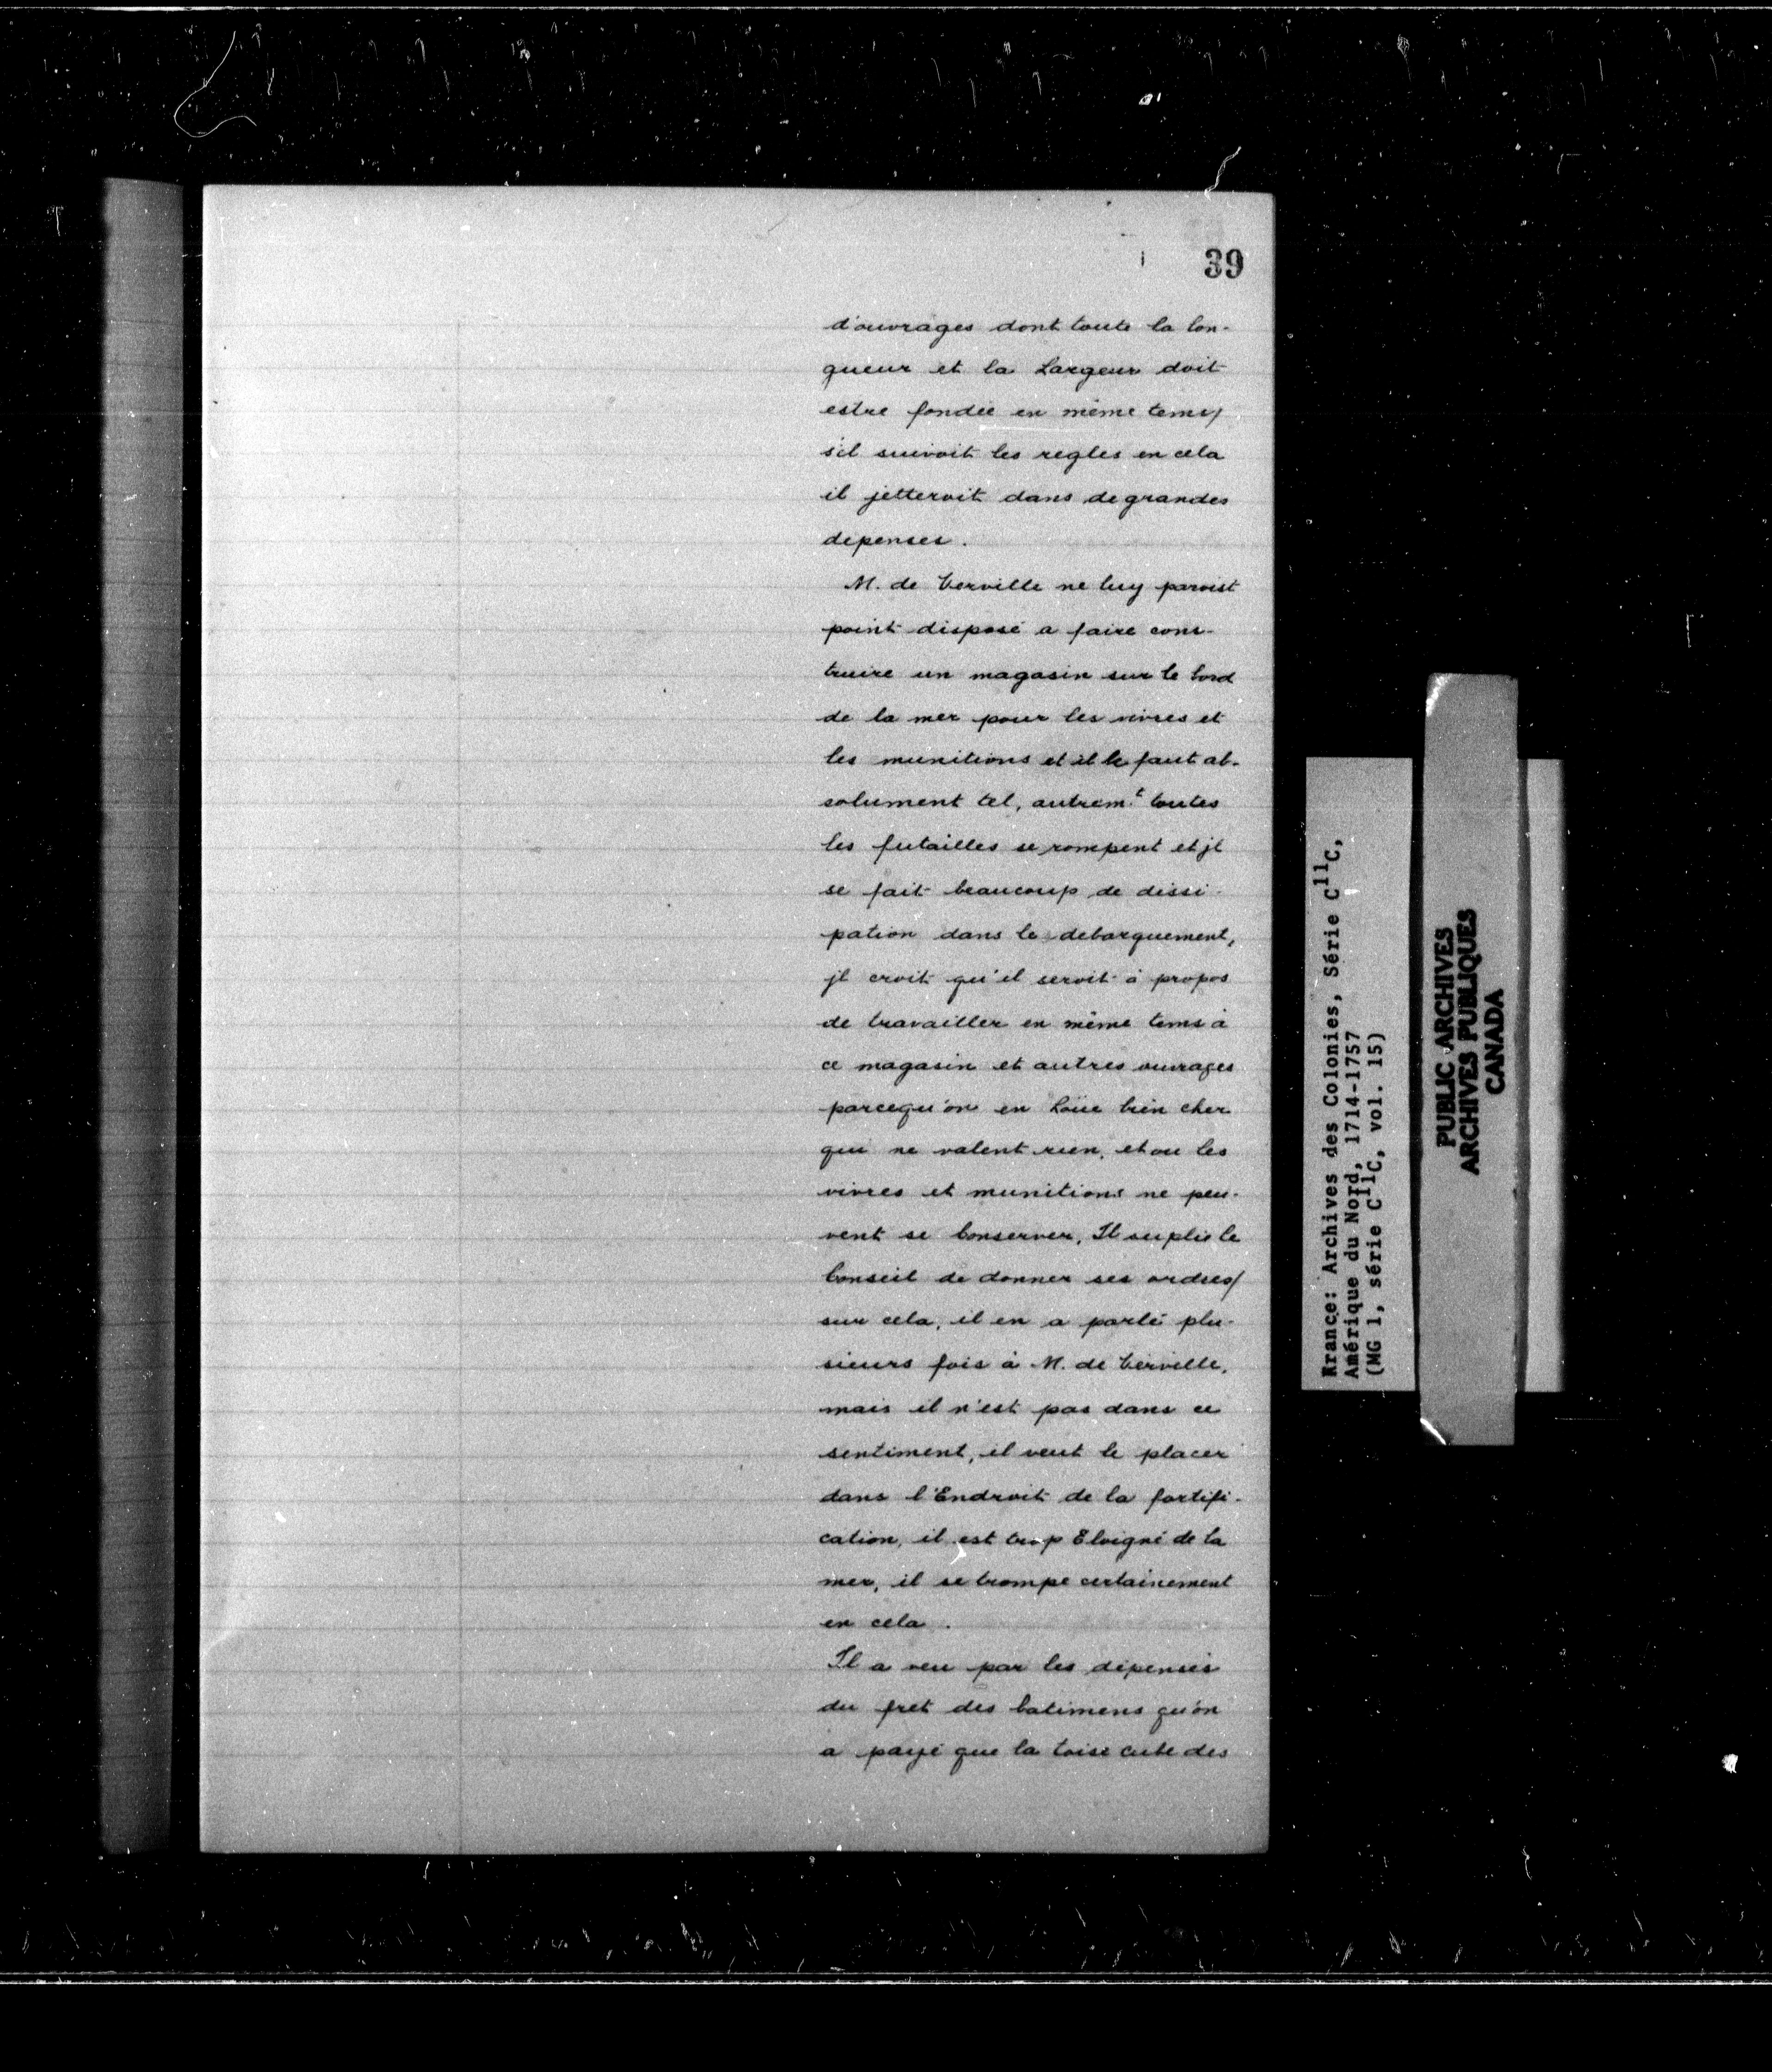 39
d'ouvrages dont toute la lon-
gueur et la Largeur doit
estre fondée en même tems/
s'il suivoit les regles en cela
il jetteroit dans de grandes
depenses.
M. de Verville ne luy paroist
point disposé a faire cons-
truire un magasin sur le bord
de la mer pour les vivres et
les munitions et il le faut ab-
solument tel, autremt toutes
les futailles se rompent et jl
se fait beaucoup de dissi-
pation dans le debarquement,
jl croit qu'il seroit à propos
de travailler en même tems à
ce magasin et autres ouvrages
parcequ'on en Loüe bien cher
qui ne valent rien, et ou les
vivres et munitions ne peu-
vent se Conserver, Il suplie le
Conseil de donner ses ordres/
sur cela, il en a parlé plu-
sieurs fois à M. de Verville,
mais il n'est pas dans ce
sentiment, il veut le placer
dans l'Endroit de la fortifi-
cation, il est trop Eloigné de la
mer, il se trompe certainement
en cela.
Il a veu par les dépenses
du fret des batimens qu'on
a payé que la toise cube des
France: Archives des Colonies, Série C11C,
Amérique du Nord, 1714-1757
(MG 1, série C11C, vol. 15)
PUBLIC ARCHIVES
ARCHIVES PUBLIQUES
CANADA